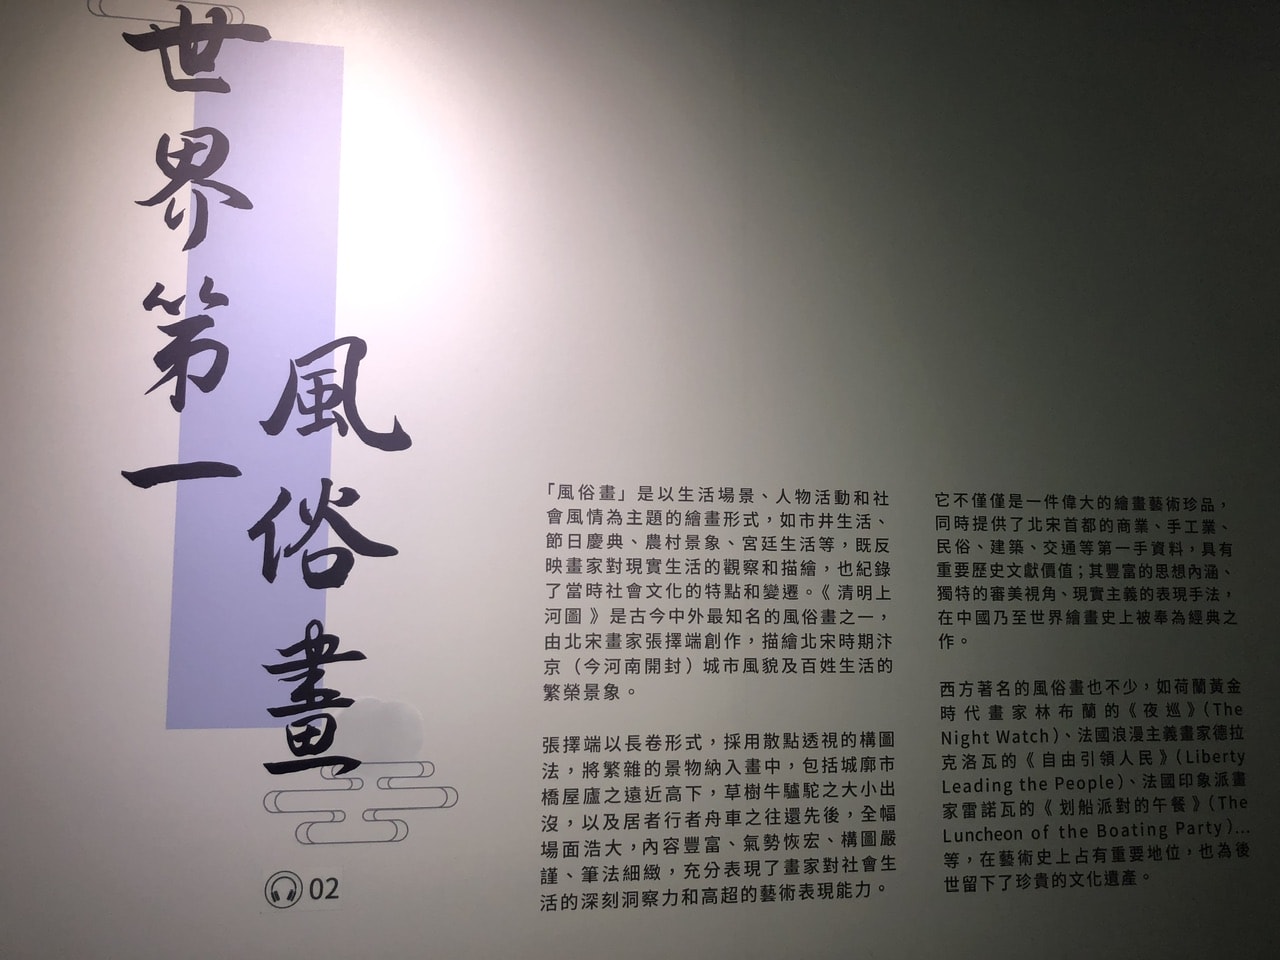 世界第一
風俗畫
02
「風俗畫」是以生活場景、人物活動和社
會風情為主題的繪畫形式，如市井生活、
節日慶典、農村景象、宮廷生活等，既反
映畫家對現實生活的觀察和描繪，也紀錄
了當時社會文化的特點和變遷。《清明上
河圖 》是古今中外最知名的風俗畫之一，
由北宋畫家張擇端創作，描繪北宋時期汴
京（今河南開封）城市風貌及百姓生活的
繁榮景象。
張擇端以長卷形式，採用散點透視的構圖
法，將繁雜的景物納入畫中，包括城廓市
橋屋廬之遠近高下，草樹牛驢駝之大小出
沒，以及居者行者舟車之往還先後，全幅
場面浩大，內容豐富、氣勢恢宏、構圖嚴
謹、筆法細緻，充分表現了畫家對社會生
活的深刻洞察力和高超的藝術表現能力。
它不僅僅是一件偉大的繪畫藝術珍品，
同時提供了北宋首都的商業、手工業、
民俗、建築、交通等第一手資料，具有
重要歷史文獻價值；其豐富的思想內涵、
獨特的審美視角、現實主義的表現手法，
在中國乃至世界繪畫史上被奉為經典之
作。
西方著名的風俗畫也不少，如荷蘭黃金
時代畫家林布蘭的《夜巡》（The
Night Watch）、法國浪漫主義畫家德拉
克洛瓦的《 自由引領人民》（Liberty
Leading the People）、法國印象派畫
家雷諾瓦的《 划船派對的午餐》（The
Luncheon of the Boating Party）...
等，在藝術史上占有重要地位，也為後
世留下了珍貴的文化遺產。